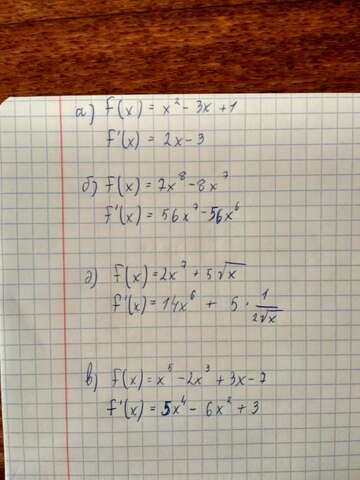 а) f(x) = x² - 3x + 1
f'(x) = 2x - 3
б) f(x) = 7x⁸ - 8x⁷
f'(x) = 56x⁷ - 56x⁶
д) f(x) = 2x⁷ + 5√x
f'(x) = 14x⁶ + 5 · 1/(2√x)
в) f(x) = x⁵ - 2x³ + 3x - 7
f'(x) = 5x⁴ - 6x² + 3